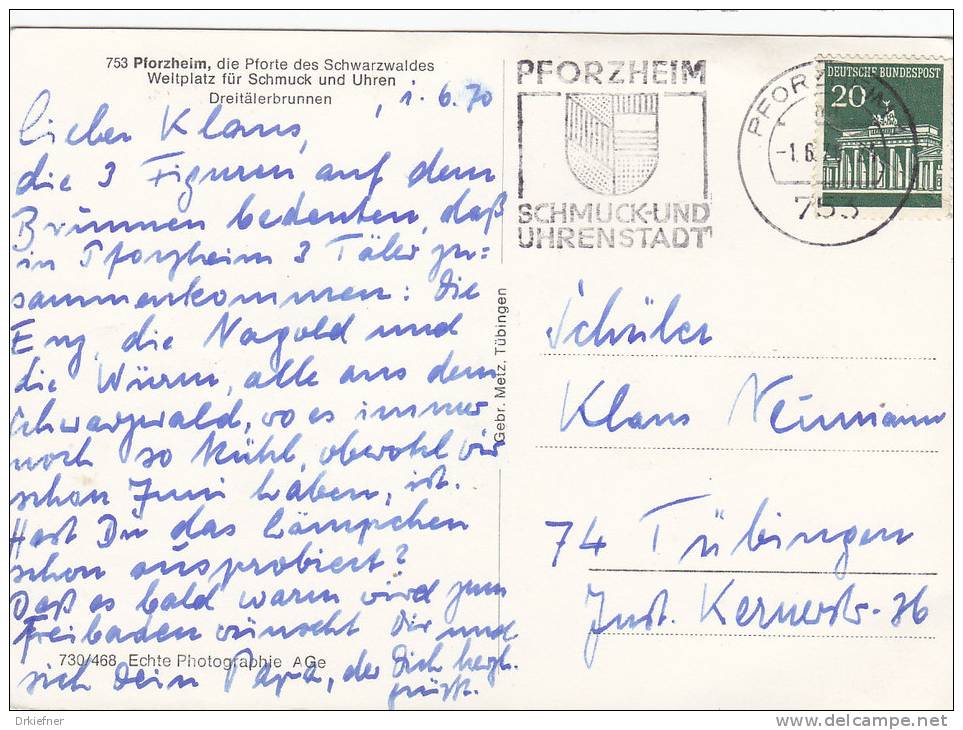 753 Pforzheim, die Pforte des Schwarzwaldes
Weltplatz für Schmuck und Uhren
Dreitälerbrunnen
1. 6. 70
Lieber Klaus,
die 3 Figuren auf dem
Brunnen bedeuten, daß
in Pforzheim 3 Täler zu=
sammenkommen: die
Enz, die Nagold und
die Würm, alle aus dem
Schwarzwald, wo es immer
noch so kühl, obwohl wir
schon Juni haben, ist.
Hast Du das Lämpchen
schon ausprobiert?
Daß es bald warm wird zum
Freibaden wünscht Dir und
sich Dein Papa, der Dich herzl.
grüßt.
730/468 Echte Photographie AGe
Gebr. Metz, Tübingen
PFORZHEIM
SCHMUCK-UND
UHRENSTADT
PFORZHEIM
-1.6.
753
DEUTSCHE BUNDESPOST
20
Schüler
Klaus Neumann
74 Tübingen
Just. Kernerstr. 36
Drkiefner
http://www.delcampe.net